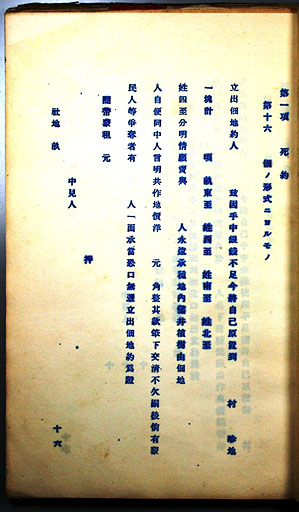 第一項　死約
第十六　佃ノ形式ニヨルモノ
立出佃地約人　茲因手中銀錢不足今將自己原置到　村　畛地
一塊計　項　畝東至　姓西至　姓南至　姓北至
姓四至分明情願賣與　人永遠承種地內僑井植樹由佃地
人自便同中人言明共作地價洋　元　角整其款當下交清不欠嗣後倘有蒙
民人等爭奪者有　人一面承當恐口無憑立出佃地約為證
隨帶蒙租　元
社地　畝
中見人
押
十六